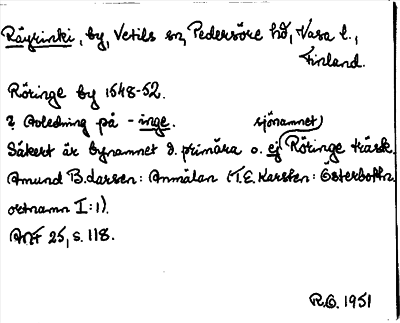 Räyrinki, by, Vetils sn, Pedersöre hd, Vasa l.,
Finland.
Röringe by 1548-52.
? Avledning på -inge.
Säkert är bynamnet d. primära o. ej sjönamnet) Röringe träsk.
Amund B. Larsen: Anmälan (T. E. Karsten: Österbottn.
ortnamn I:1).
ANF 25, s. 118.
R.G. 1951